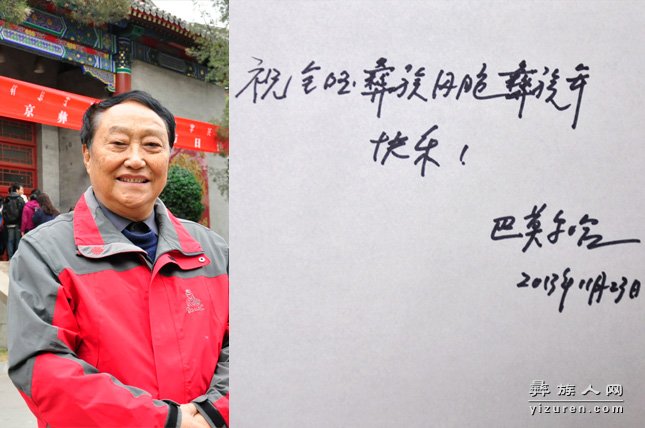 京彝
日
祝全国彝族同胞彝族年
快乐！
巴莫尔哈
2013年11月23日
彝族人网
yizuren.com